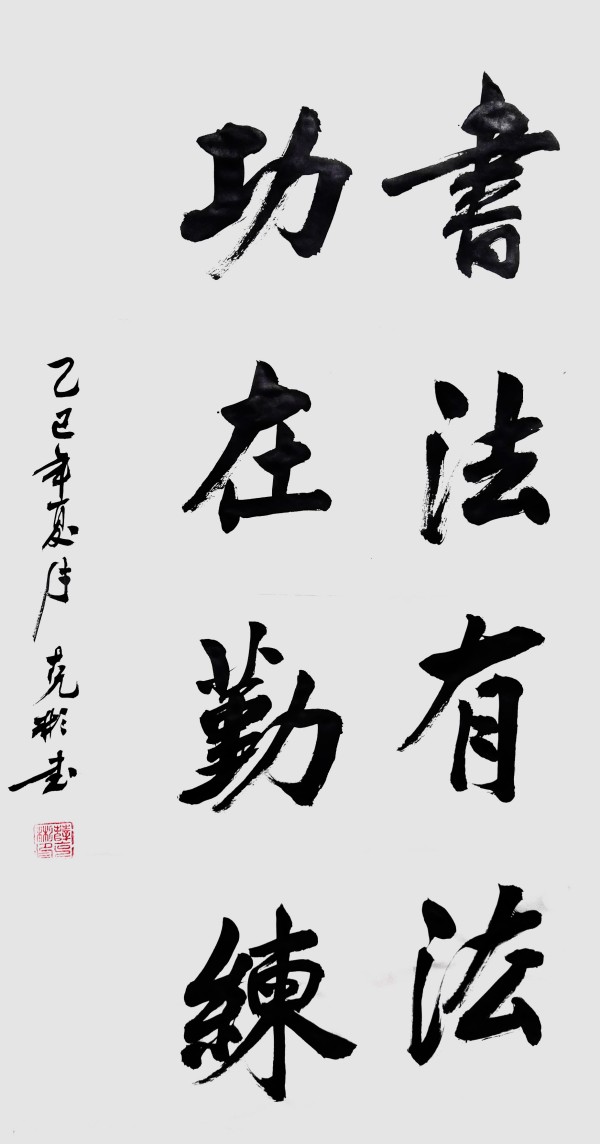 書法有法
功在勤練
乙巳年夏月 克彬書